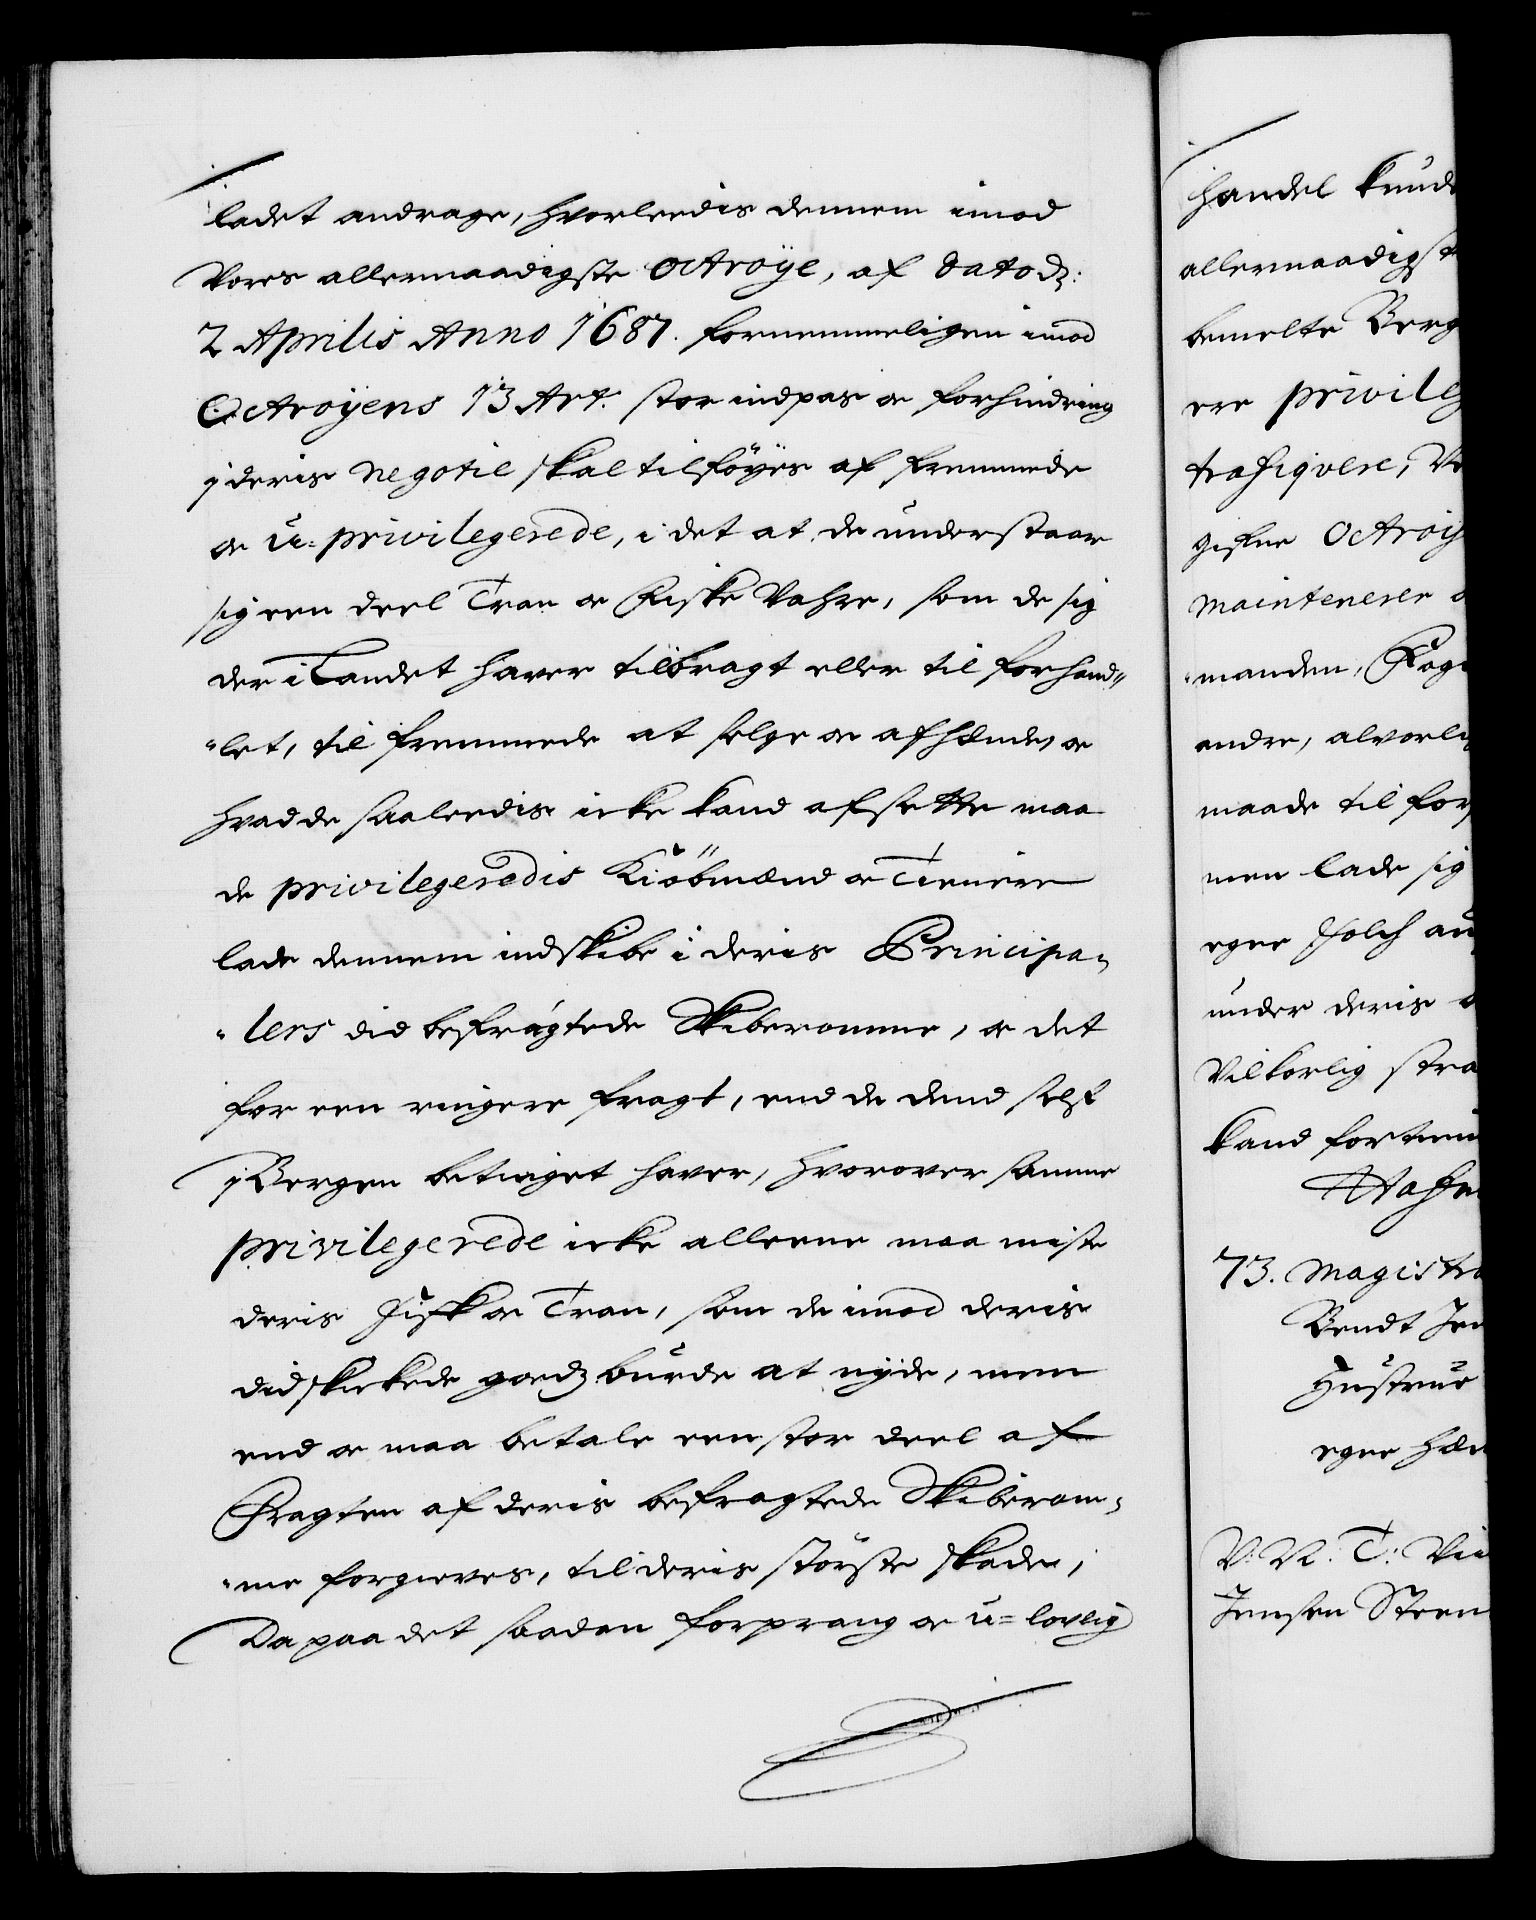 ladet andrage, hvorleedis dennem imod
Vores allernaadigste Octroÿe, af dato d:
2 Aprilis Anno 1687. fornemmeligen imod
Octroÿens 13 Art. stor indpas oc forhindring
j deris negotie skal tilföÿes af fremmede
oc u-privilegerede, i det at de understaar
sig een deel Tran oc Fiske Vahre, som de sig
der i Landet haver tilbragt eller til forhand„
„let, til fremmede at selge oc afhænde, oc
hvad de saaleedis icke kand afsette maa
de privilegeredis Kiöbmænd oc Tienere
lade dennem indskibe i deris Principa„
„lers did befragtede Skiberomme, oc det
for een ringere fragt, end de dend self
j Bergen betinget haver, hvorover samme
privilegerede icke alleene maa miste
deris Fisk oc Tran, som de imod deris
did skickede goedz burde at nyde, men
end oc maa betale een stor deel af
Fragten af deris befragtede Skiberom„
„me forgieves, til deris störste skade,
Da paa det saadan forprang oc u-lovlig
handel kund
allernaadigst
bemelte Berg
ere privileg
trafiqvere, V
gifne Octroÿ
maintenerer
„manden, Fog
andre, alvorli
maade til for
men lade sig
egne Folch
under deris
Vilkorlig stra
kand fortien
Hafn
73. Magistra
Bendt Jen
Hustrue
egne hæn
V: N: T: Vii
Jensen Steen